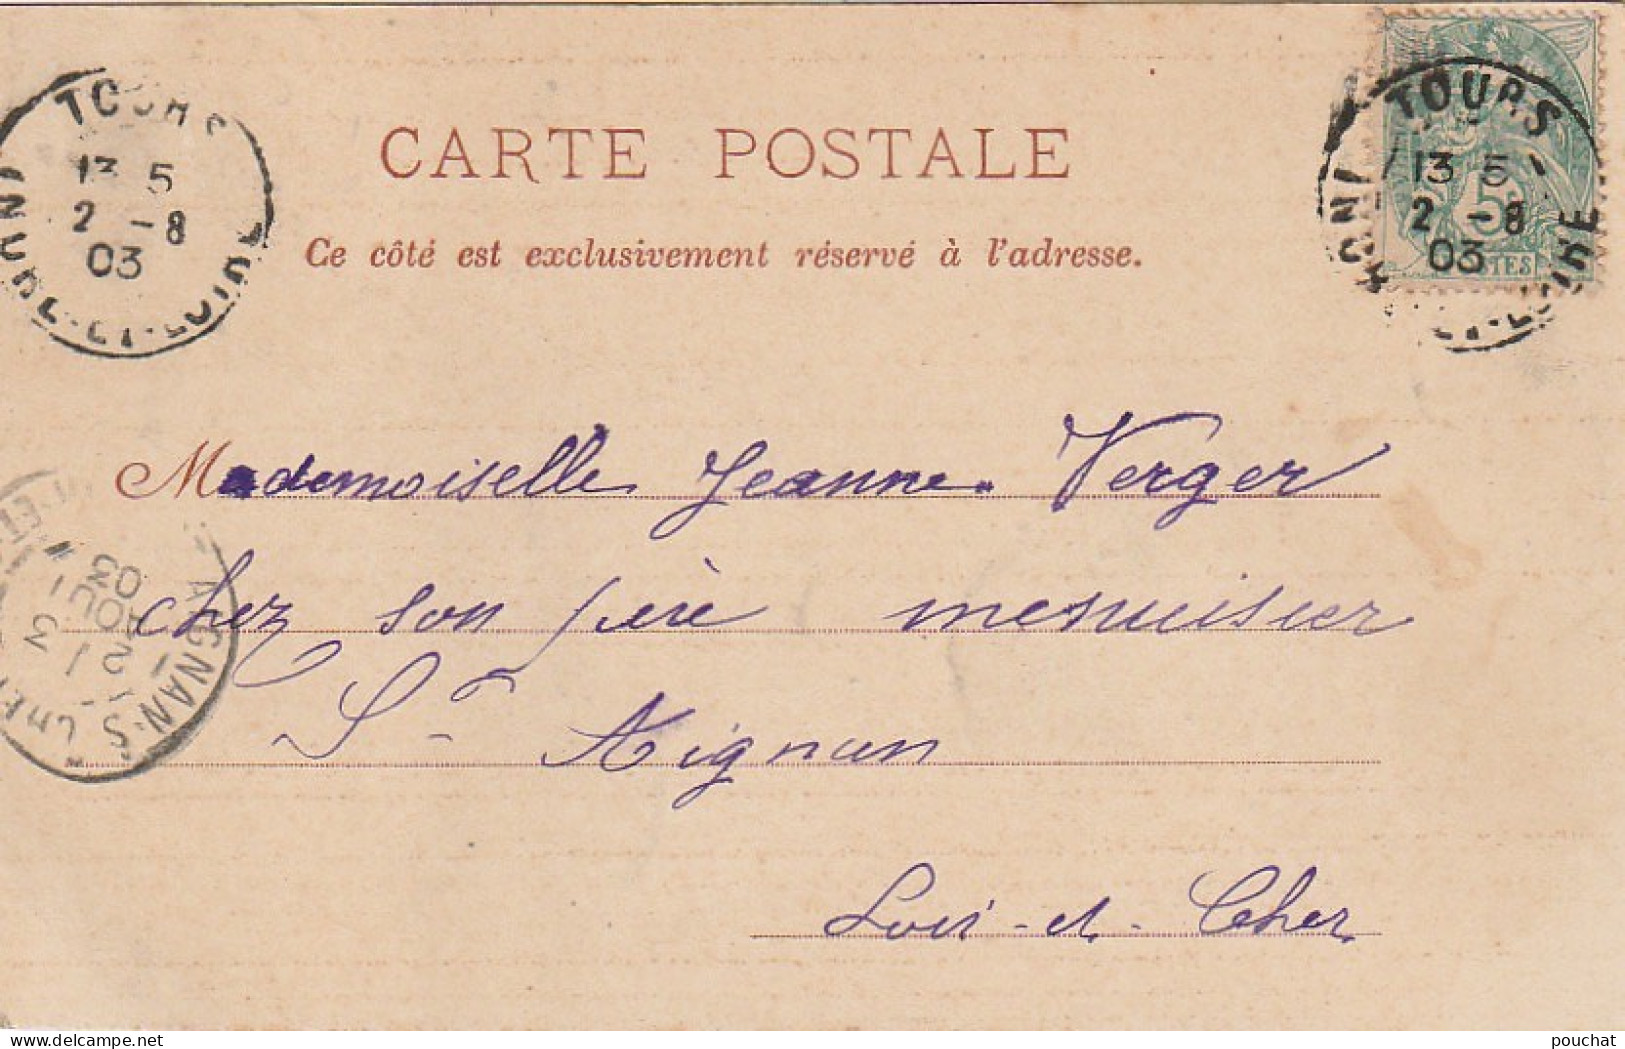 TOURS
13 5
2 -8
03
INDRE-ET-LOIRE
CARTE POSTALE
Ce côté est exclusivement réservé à l'adresse.
TOURS
13 5
2 -8
03
INDRE-ET-LOIRE
5
POSTES
Mademoiselle Jeanne Verger
chez son père menuisier
St Aignan
Loir-et-Cher
AIGNAN-S-CHER
2
AOUT
03
pouchat
www.delcampe.net